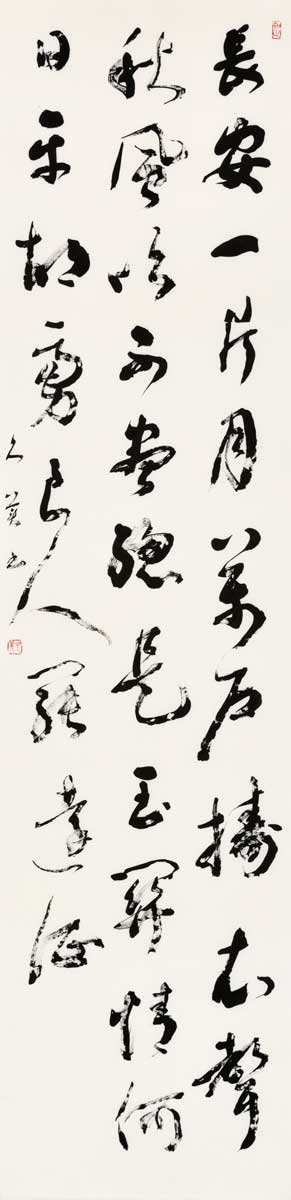 長安一片月萬戶擣衣聲
秋風吹不盡總是玉關情何
日平胡虜良人罷遠征
書